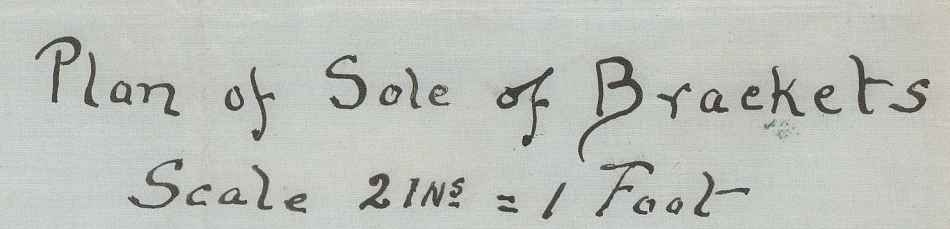 Plan of Sole of Brackets
Scale 2 INS = 1 Foot